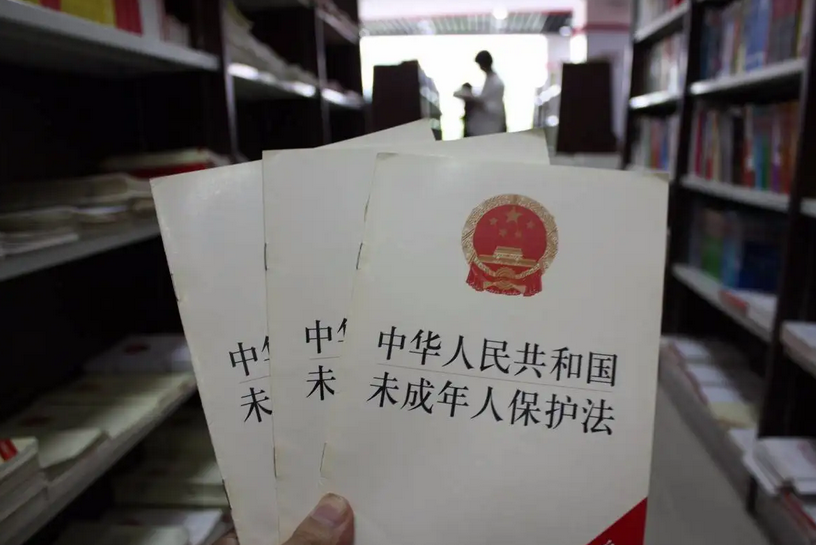 中华人民共和国
未成年人保护法
中华
未
中华
未